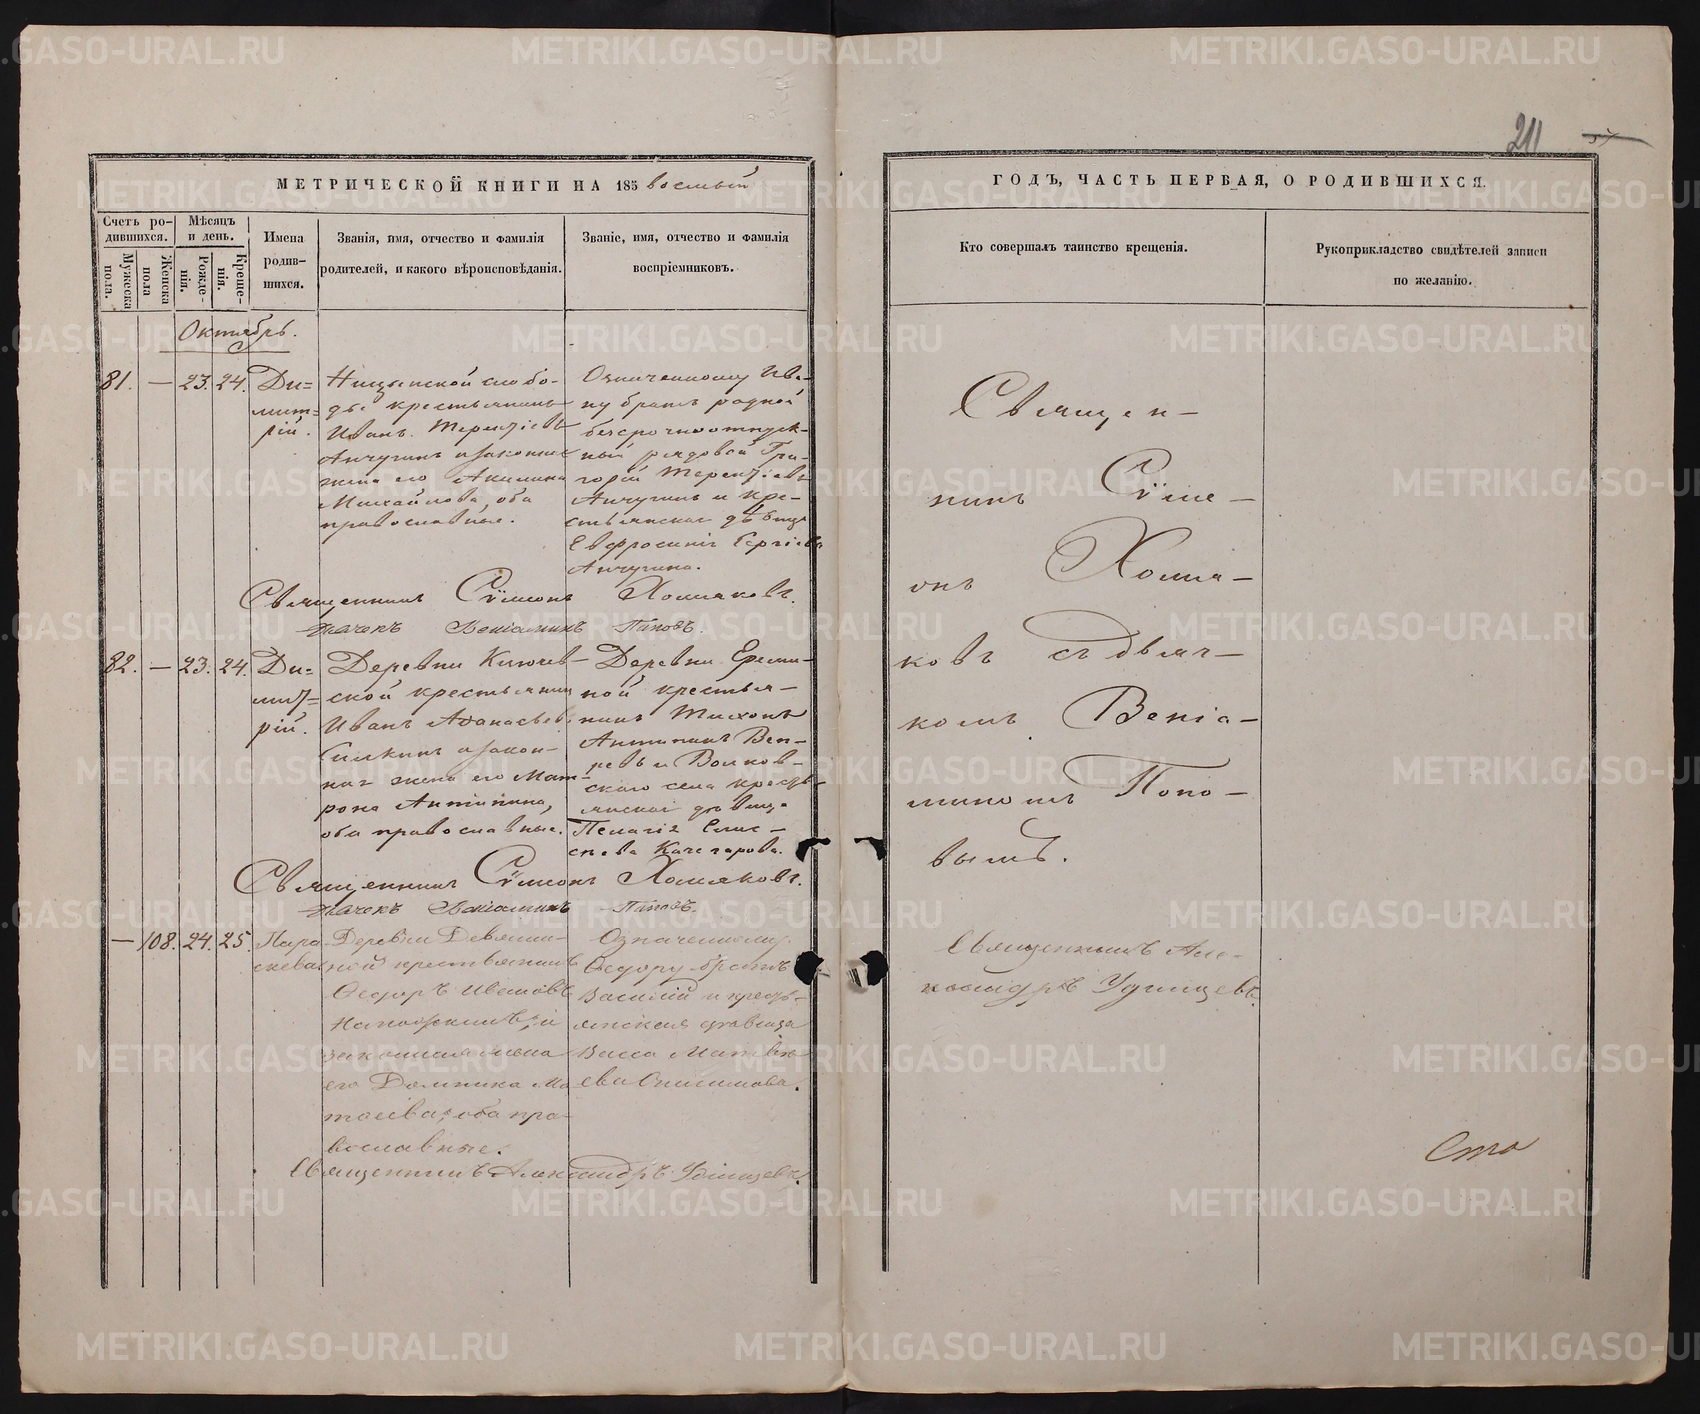 211
МЕТРИЧЕСКОЙ КНИГИ НА 185 восьмый
ГОДЪ, ЧАСТЬ ПЕРВАЯ, О РОДИВШИХСЯ.
Счетъ ро-
дившихся.
Мужеска
пола.
Женска
пола
Мѣсяцъ
и день.
Рожде-
нія.
Креще-
нія.
Имена
родив-
шихся.
Званія, имя, отчество и фамилія
родителей, и какого вѣроисповѣданія.
Званіе, имя, отчество и фамилія
воспріемниковъ.
Кто совершалъ таинство крещенія.
Рукоприкладство свидѣтелей записи
по желанію.
Октябрь.
81. — 23. 24.
Ди=
мит=
рій.
Ницынской слобо-
ды крестьянинъ
Иванъ Терентіевъ
Анчугинъ и законная
жена его Акилина
Михайлова, оба
православные.
Означенному Ива-
ну братъ родной
безсрочноотпуск-
ный рядовой Гри-
горій Терентіевъ
Анчугинъ и кре-
стьянская дѣвица
Евфросинія Сергіева
Анчугина.
Священникъ Сѵмеонъ Хомяковъ.
Дьячекъ Веніаминъ Поповъ.
82. — 23. 24.
Ди=
мит=
рій.
Деревни Ключев-
ской крестьянинъ
Иванъ Аѳанасьевъ
Силкинъ и закон-
ная жена его Мат-
рона Антипина,
оба православные.
Деревни Ереми-
ной крестья-
нинъ Тихонъ
Антипинъ Веп-
ревъ и Волков-
скаго села кресть-
янская дѣвица
Пелагія Елис-
еева Качегарова.
Священникъ Сѵмеонъ Хомяковъ.
Дьячекъ Веніаминъ Поповъ.
— 108. 24. 25.
Пара
скева
Деревни Девяши-
ной крестьянинъ
Ѳедоръ Ивановъ
и
законная жена
его Домника Ма
тѳеева, оба пра-
вославные.
Означенному
Ѳедору братъ
Василій и кресть-
янская дѣвица
Васса Матвѣ-
ева Онисимова.
Священникъ Александръ Удинцевъ.
Священ-
никъ Сѵме-
онъ Хомя-
ковъ съ дьяч-
комъ Веніа-
миномъ Попо-
вымъ.
Священникъ Але-
ксандръ Удинцевъ.
Сто